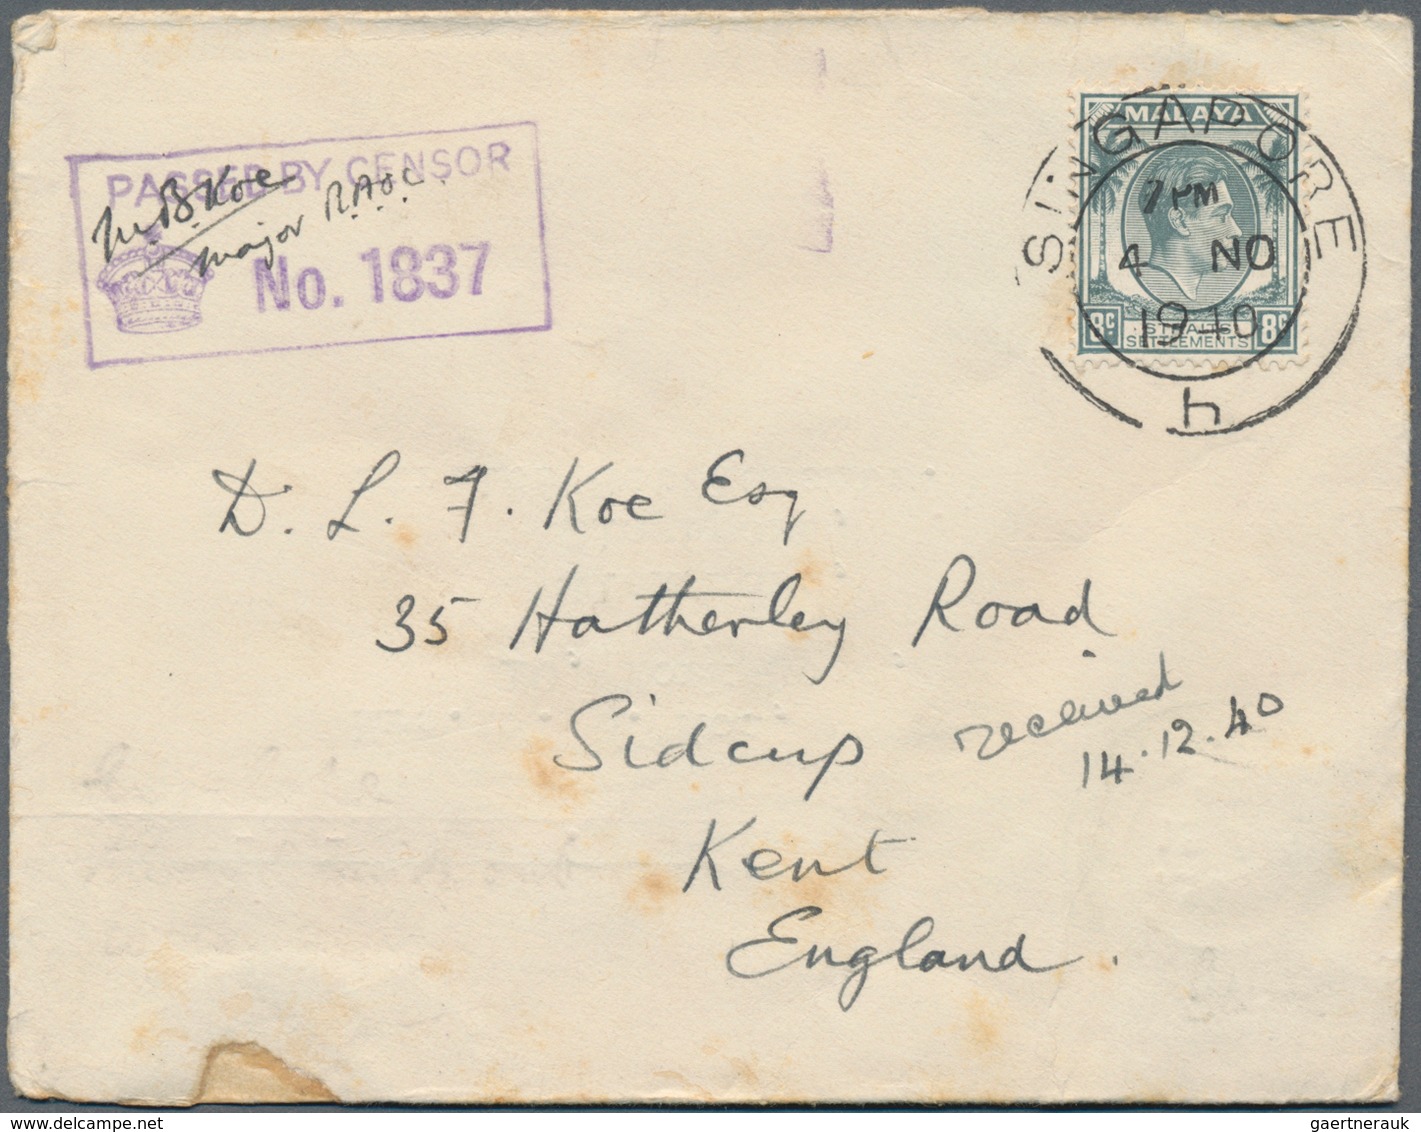 PASSED BY CENSOR
M.B. Koe
Major R.A.O.C.
No. 1837
MALAYA
8c STRAITS SETTLEMENTS 8c
SINGAPORE
7 PM
4 NO
1940
h
D. L. F. Koe Esq
35 Hatherley Road
Sidcup
received
14.12.40
Kent
England.
gaertnerauk @ delcampe.net